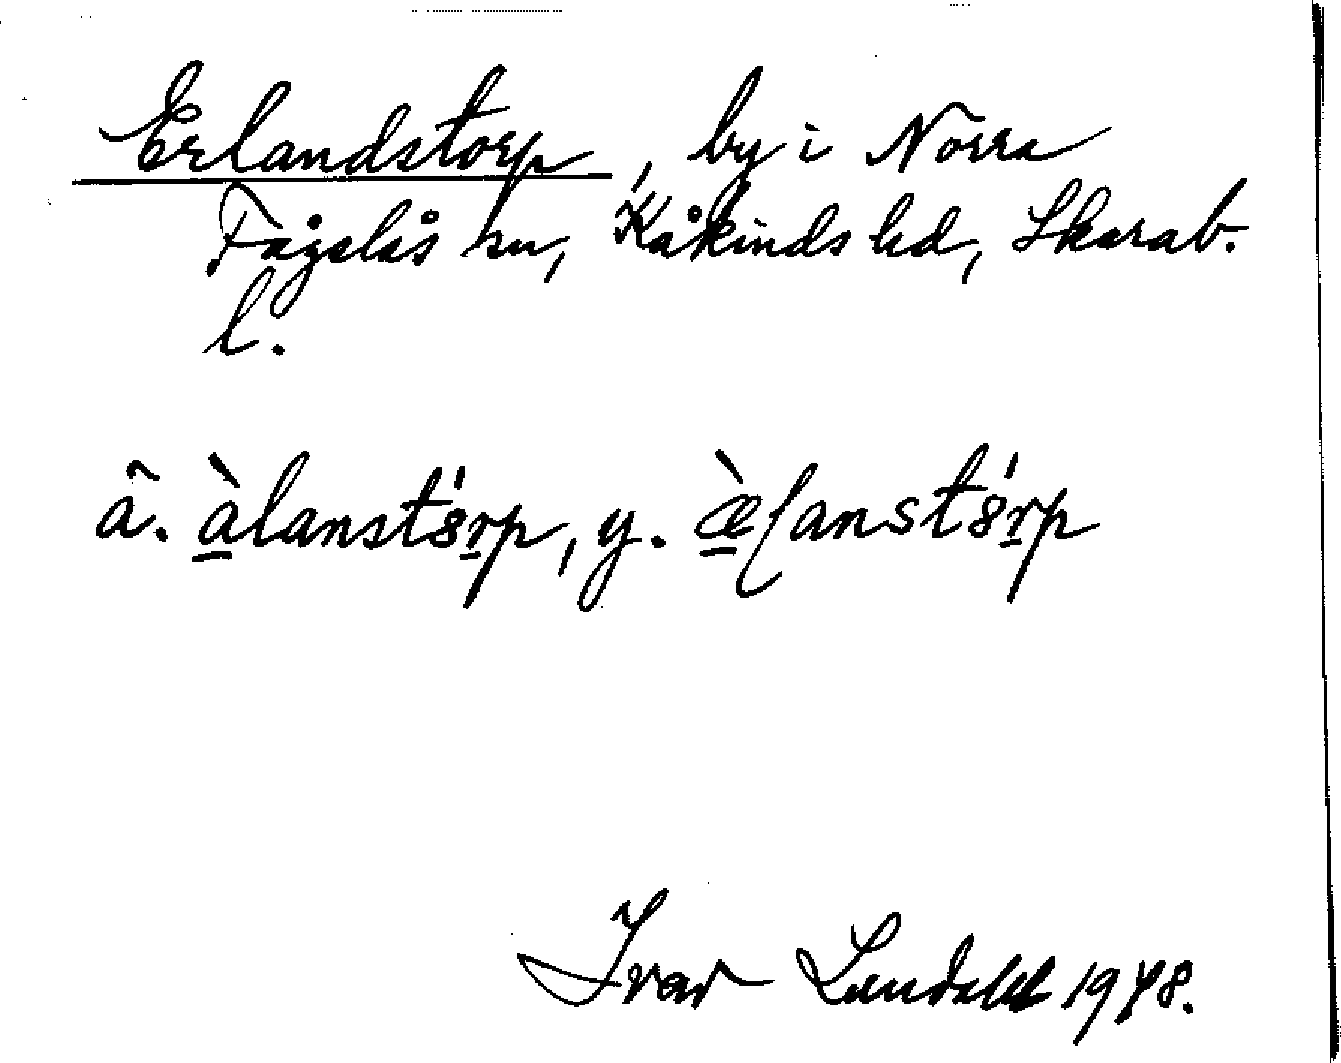 Erlandstorp, by i Norra
Fågelås sn, Kåkinds hd, Skarab.
l.
ä. àlanstȣ́rp, y. æ̀lanstȣ́rp
Ivar Lundahl 1948.